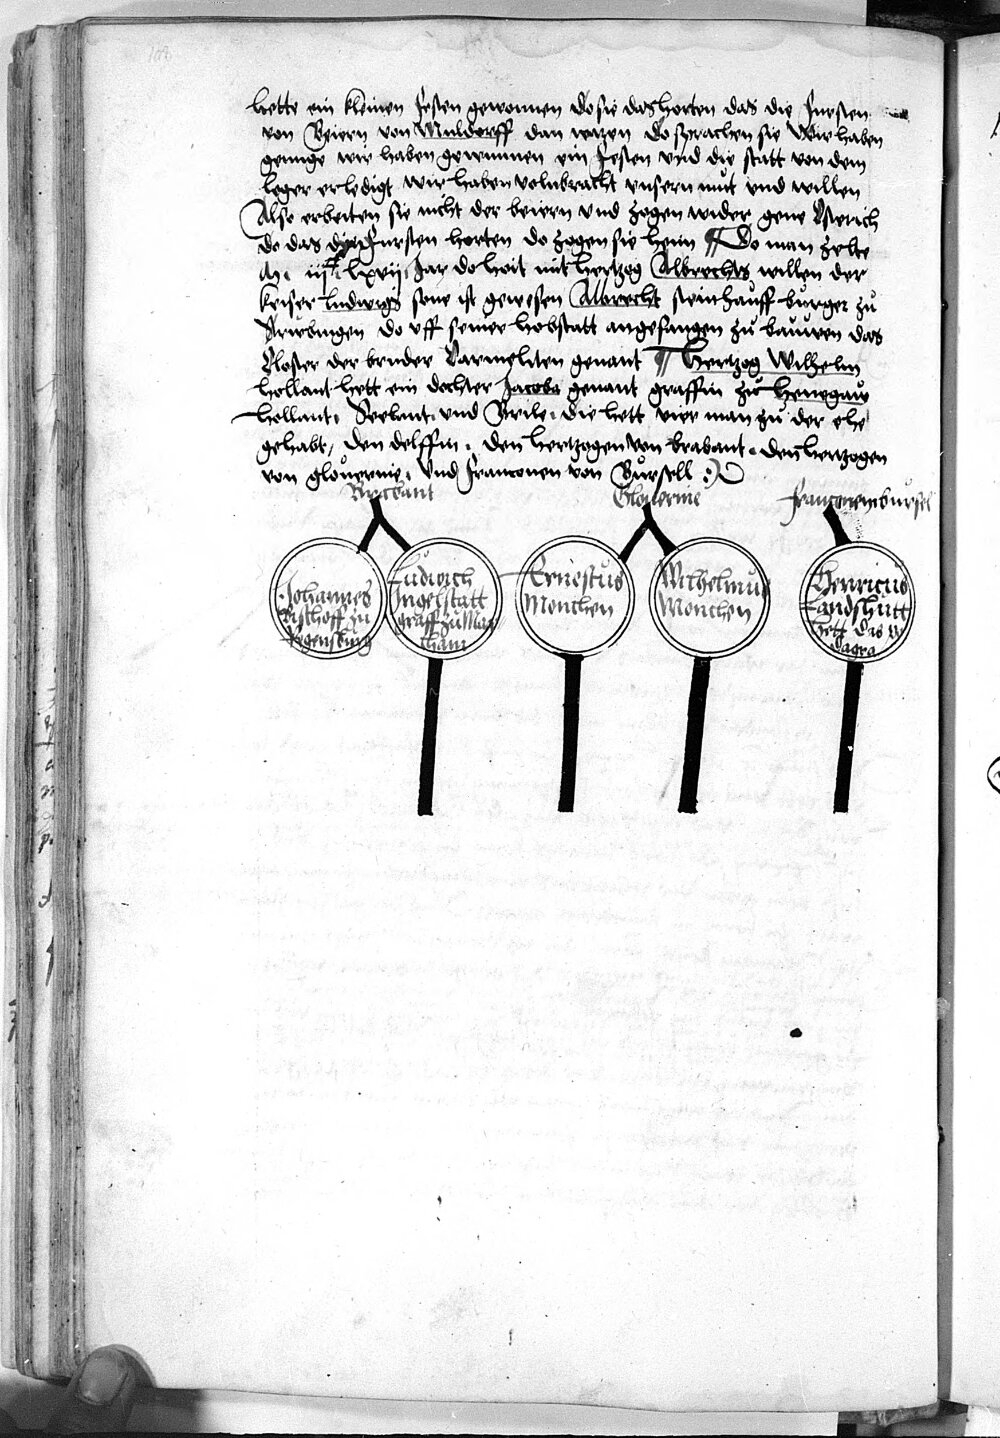 hette ein kleinen festen gewonnen do sie das horten das die fursten
von Beiern von Muldorff dan waren do sprachen sie Wir haben
genuge wir haben gewunnen ein festen und die statt von dem
leger erledigt wir haben volnbracht unsern mut und willen
Also erbeiten sie nicht der beiern und zogen wider gene Osterich
do das die fursten horten do zogen sie heim Do man zelte
lxvij Jar do hett mit hertzog Albrechts willen der
keiser ludwigs sone ist gewesen Albrecht steinhauff burger zu
Strubingen do uff seiner hobstatt angefangen zu bauwen das
Closter der bruder Carmeliten genant Hertzog Wilhelm
hollant hett ein dochter Jacoba genant graffin zu Henegaw
hollant Seelant und Brile die hett vier man zu der ehe
gehabt, den delffin, den hertzogen von brabant, den hertzogen
von glouernie, und franconen von Bursell
Brabant Glouernie franconem bursel
Johannes
Bischoff zu
Regenspurg
Ludwich
Ingelstatt
graff zu Mar
tham
Ernestus
Monchen
Wilhelmus
Monchen
Henricus
Landshutt
hett das